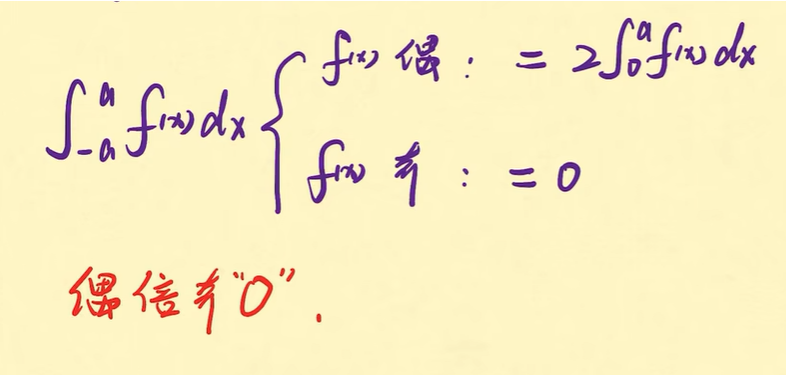 ∫_{-a}^{a} f(x)dx { f(x) 偶 : = 2∫_{0}^{a} f(x)dx
f(x) 奇 : = 0
偶倍奇“0”.